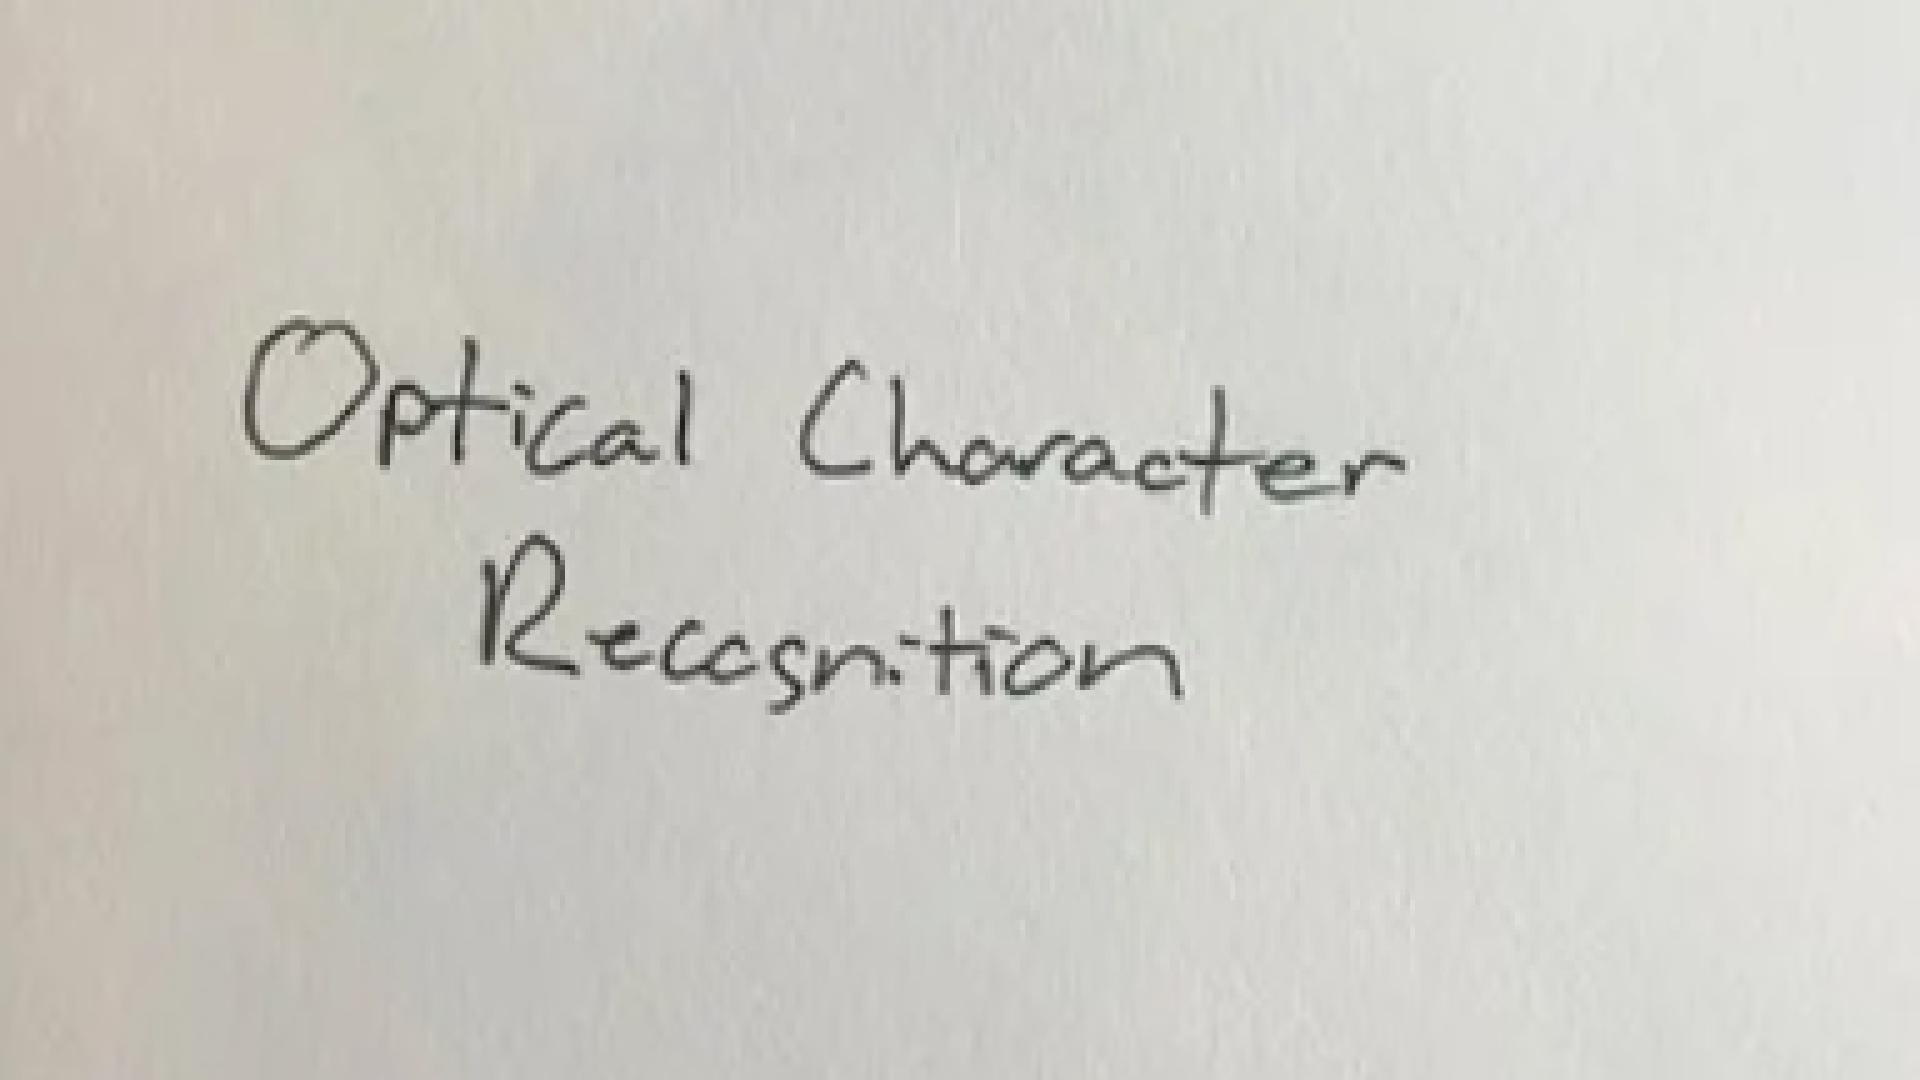 Optical Character
Recognition